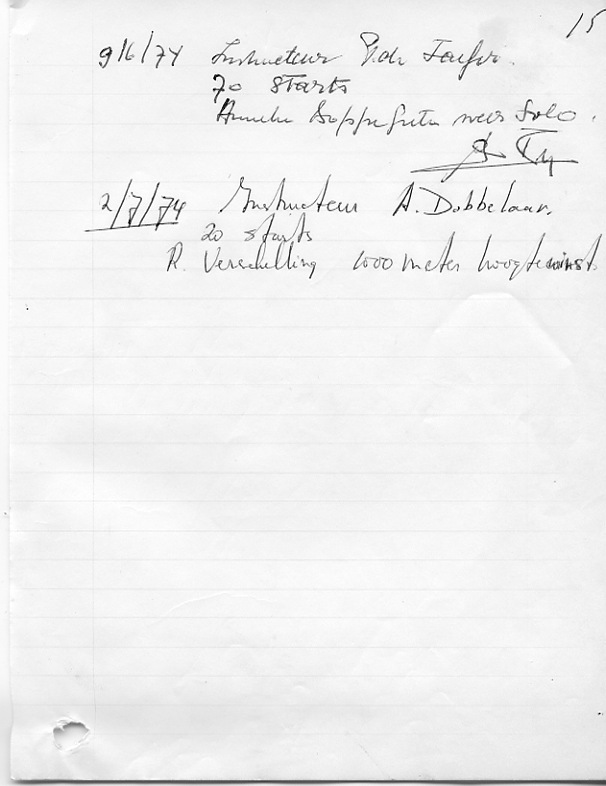 15
9/6/74 Instructeur P.de
70 starts
Anneke weer solo.
2/7/74 Instructeur A. Dobbelaar.
20 starts
R. Verschelling 1000 meter hoogtewinst.